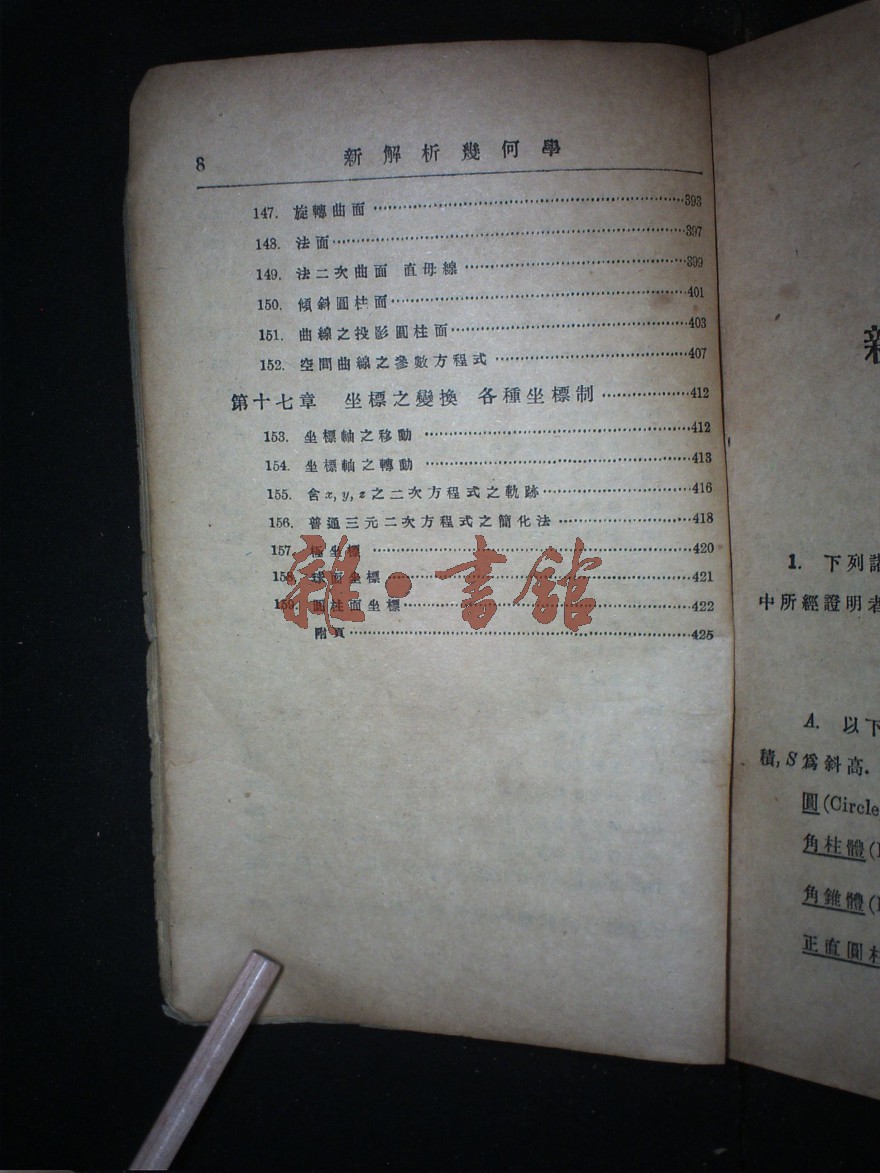 8 新解析幾何學
147. 旋轉曲面 393
148. 法面 397
149. 法二次曲面 直母線 399
150. 傾斜圓柱面 401
151. 曲線之投影圓柱面 403
152. 空間曲線之參數方程式 407
第十七章 坐標之變換 各種坐標制 412
153. 坐標軸之移動 412
154. 坐標軸之轉動 413
155. 含x, y, z之二次方程式之軌跡 416
156. 普通三元二次方程式之簡化法 418
157. 極坐標 420
158. 球面坐標 421
159. 圓柱面坐標 422
附頁 425
雜·書館
新
1. 下列諸
中所經證明者
A. 以下
積, S爲斜高.
圓(Circle
角柱體(
角錐體(
正直圓柱